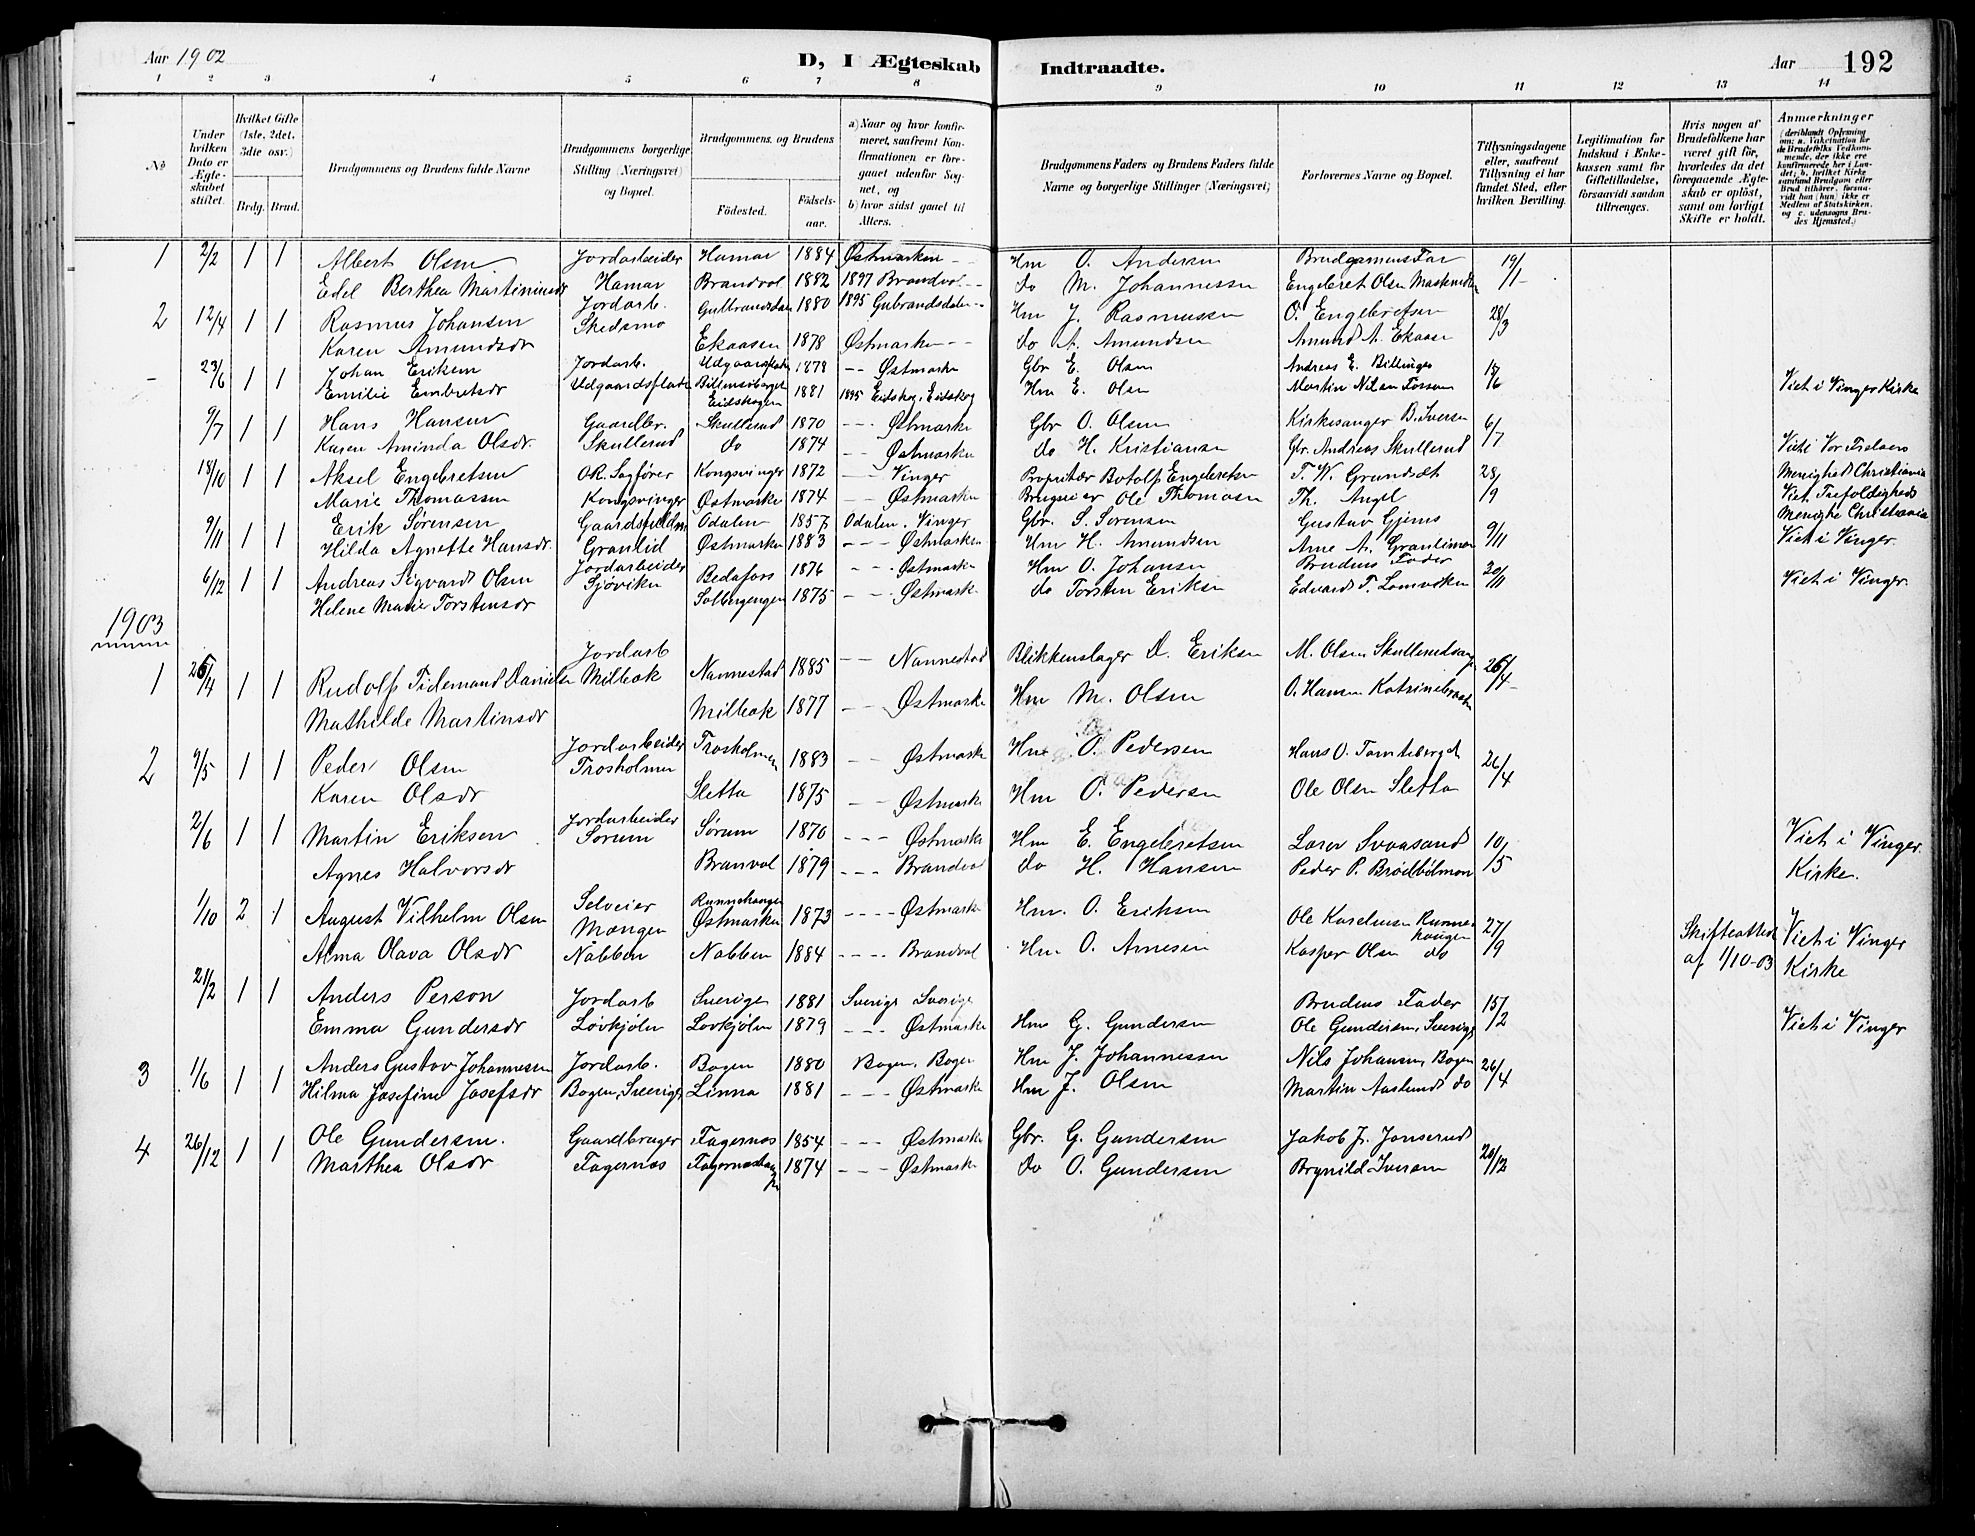 Aar 1902 D, I Ægteskab Indtraadte. Aar 192
1 2 3 4 5 6 7 8 9 10 11 12 13 14
No
Under hvilken Dato er Ægteskabet stiftet.
Hvilket Gifte (1ste, 2det, 3die osv.)
Brdg. Brud.
Brudgommens og Brudens fulde Navne
Brudgommens borgerlige Stilling (Næringsvei) og Bopæl.
Brudgommens og Brudens
Fødested. Fødselsaar.
a) Naar og hvor konfirmeret, saafremt Konfirmationen er foregaaet udenfor Sognet, og
b) hvor sidst gaaet til Alters.
Brudgommens Faders og Brudens Faders fulde Navne og borgerlige Stillinger (Næringsvei)
Forlovernes Navne og Bopæl.
Tillysningsdagene eller, saafremt Tillysning ei har fundet Sted, efter hvilken Bevilling.
Legitimation for Indskud i Enkekassen samt for Giftetilladelse, forsaavidt saadan tiltrænges.
Hvis nogen af Brudefolkene har været gift før, hvorledes da det foregaaende Ægteskab er opløst, samt om lovligt Skifte er holdt.
Anmærkninger
1 2/2 1 1 Albert Olsen Jordarbeider Hamar 1884 Østmarken - - Hm O. Andersen Brudgomens Far 19/1
Edel Berthea Martinusdr Hamar Brandvol 1882 1897 Brandvol - - do M. Johannessen Engebret Olsen
2 12/4 1 1 Rasmus Johansen Jordarb. Skedsmo Gulbrandsdalen 1880 1895 Gubrandsdalen - - Hm J. Rasmussen O. Engebretsen 28/3
Karen Amundsdr Ekaasen 1878 Østmarken - - do A. Amundsen Amund A. Ekaasen
- 23/6 1 1 Johan Eriksen Jordarb. 1878 - - Østmarke Gbr E. Olsen Andreas E. Billinges
Emilie Embretsdr Eidskogen 1881 1895 Eidskog, Eidskog Hm E. Olsen Martin Nilsen Fossum Viet i Vinger Kirke
9/7 1 1 Hans Hansen Gaardbr. Skullerud 1870 - - - Østmarke Gbr O. Olsen Kirkesanger B. Iversen 6/7
Karen Aminda Olsdr. Skullerud do 1874 - - Østmarke do H. Kristiansen Gbr. Andreas Skullerud Viet i Vor Frelsers
18/10 1 1 Aksel Engebretsen OR. Sagfører Kongsvinger 1872 - - Vinger Proprietær Botolf Engebretsen F. W. Grundseth 28/9 Menighed Christiania
Marie Thomassen Kongsvinger Østmarke 1874 - - Østmarke Brugseier Ole Thomasen Th. Angel Viet. Trefoldigheds
9/11 1 1 Erik Sørensen Odalen 1857 Odalen. Vinger Gbr. S. Sørensen Gustav Gjems 9/11 Menighe Christiania
Hilda Agnette Hansdr. Granlid Østmarken 1883 - - - Østmarken Hm H. Amundsen Arne A. Granlimoen Viet i Vinger.
6/12 1 1 Andreas Sigvard Olsen Jordarbeider Sjøviken Bedafors 1876 - - - Østmarke Hm O. Johansen Brudens Fader 30/11
Helene Marie Torstensdr Solbergengen 1875 - - - Østmarke do Torsten Eriksen Edvard T. Viet i Vinger.
1903
1 26/4 1 1 Rudolf Tidemand Danielsen Jordarb Milbak Nannestad 1885 - - Nannestad Blikkenslager D. Eriksen M. Olsen 26/4
Mathilde Martinsdr Milbak 1877 - - Østmarke Hm M. Olsen O. Hansen Katrinebraaten
2 9/5 1 1 Peder Olsen Jordarbeider Trosholmen Trosholmen 1883 - - Østmarke Hm O. Pedersen Hans O. Tomteberget 26/4
Karen Olsdr Sletta 1875 - - Østmarke Hm O. Pedersen Ole Olsen Sletta
2/6 1 1 Martin Eriksen Jordarbeider Sørum Sørum 1870 - - - Østmarke Hm E. Engebretsen Lars Svaasand 10/5 Viet i Vinger
Agnes Halvorsdr Branvol 1879 - - - Brandvol do H. Hansen Peder P. Brødbølmoen Kirke.
1/10 2 1 August Vilhelm Olsen Selveier Mangen Runnehaugen Østmarken 1873 - - - - Østmarke Hm. O. Eriksen Ole Karelius Runnehaugen 27/9 Skifteattest Viet i Vinger
Alma Olava Olsdr Nabben Nabben 1884 - - - - Brandvol Hm O. Arnesen Kasper Olsen do af 1/10-03 Kirke
21/2 1 1 Anders Person Jordarb Sverige 1881 Sverige Sverige Brudens Fader 15/2
Emma Gundersdr Løvkjølen Løvkjølen 1879 - - - Østmarke Hm G. Gundersen Ole Gundersen, Sverige Viet i Vinger
3 1/6 1 1 Anders Gustav Johannesen Jordarb. Bogen 1880 Bogen, Bogen Hm J. Johannessen Nils Johansen, Bogen 26/4
Hilma Josefine Josefsdr Bogen, Sverige Linna 1881 - - - Østmarke Hm J. Olsen Martin Aaslund do
4 26/12 1 1 Ole Gundersen. Gaardbruger Fagernæs 1854 - - - Østmarke Gbr. G. Gundersen Jakob J. Jonserud 26/12
Marthea Olsdr Fagernæs Fagernæshaugen 1874 - - - Østmarke do O. Gundersen Brynild Iversen